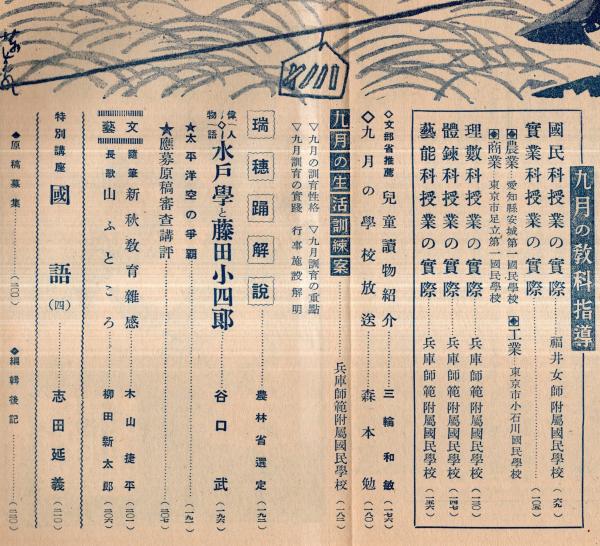 九月の教科指導
國民科授業の實際……福井女師附屬國民學校(六九)
實業科授業の實際……(一〇五)
◈農業…愛知縣安城第一國民學校 ◈工業…東京市小石川國民學校
◈商業…東京市足立第一國民學校
理數科授業の實際……兵庫師範附屬國民學校(一三〇)
體錬科授業の實際……兵庫師範附屬國民學校(一四七)
藝能科授業の實際……兵庫師範附屬國民學校(一五六)
◇文部省推薦 兒童讀物紹介……三輪和敏(一七六)
◇九月の學校放送……森本勉(一八〇)
九月の生活訓練案……兵庫師範附屬國民學校(一八二)
▽九月の訓育性格 ▽九月訓育の重點
▽九月訓育の實踐 行事施設解明
瑞穗踊解說……農林省選定(一九二)
偉人物語 水戶學と藤田小四郎……谷口武(一九六)
★太平洋空の爭覇……(一九一)
★應募原稿審査講評……(二〇七)
文藝 隨筆 新秋敎育雜感……木山捷平(二〇一)
長歌 山ふところ……柳田新太郎(二〇六)
特別講座 國語(四)……志田延義(二一〇)
◆原稿募集……(二〇〇) ◆編輯後記……(二二〇)